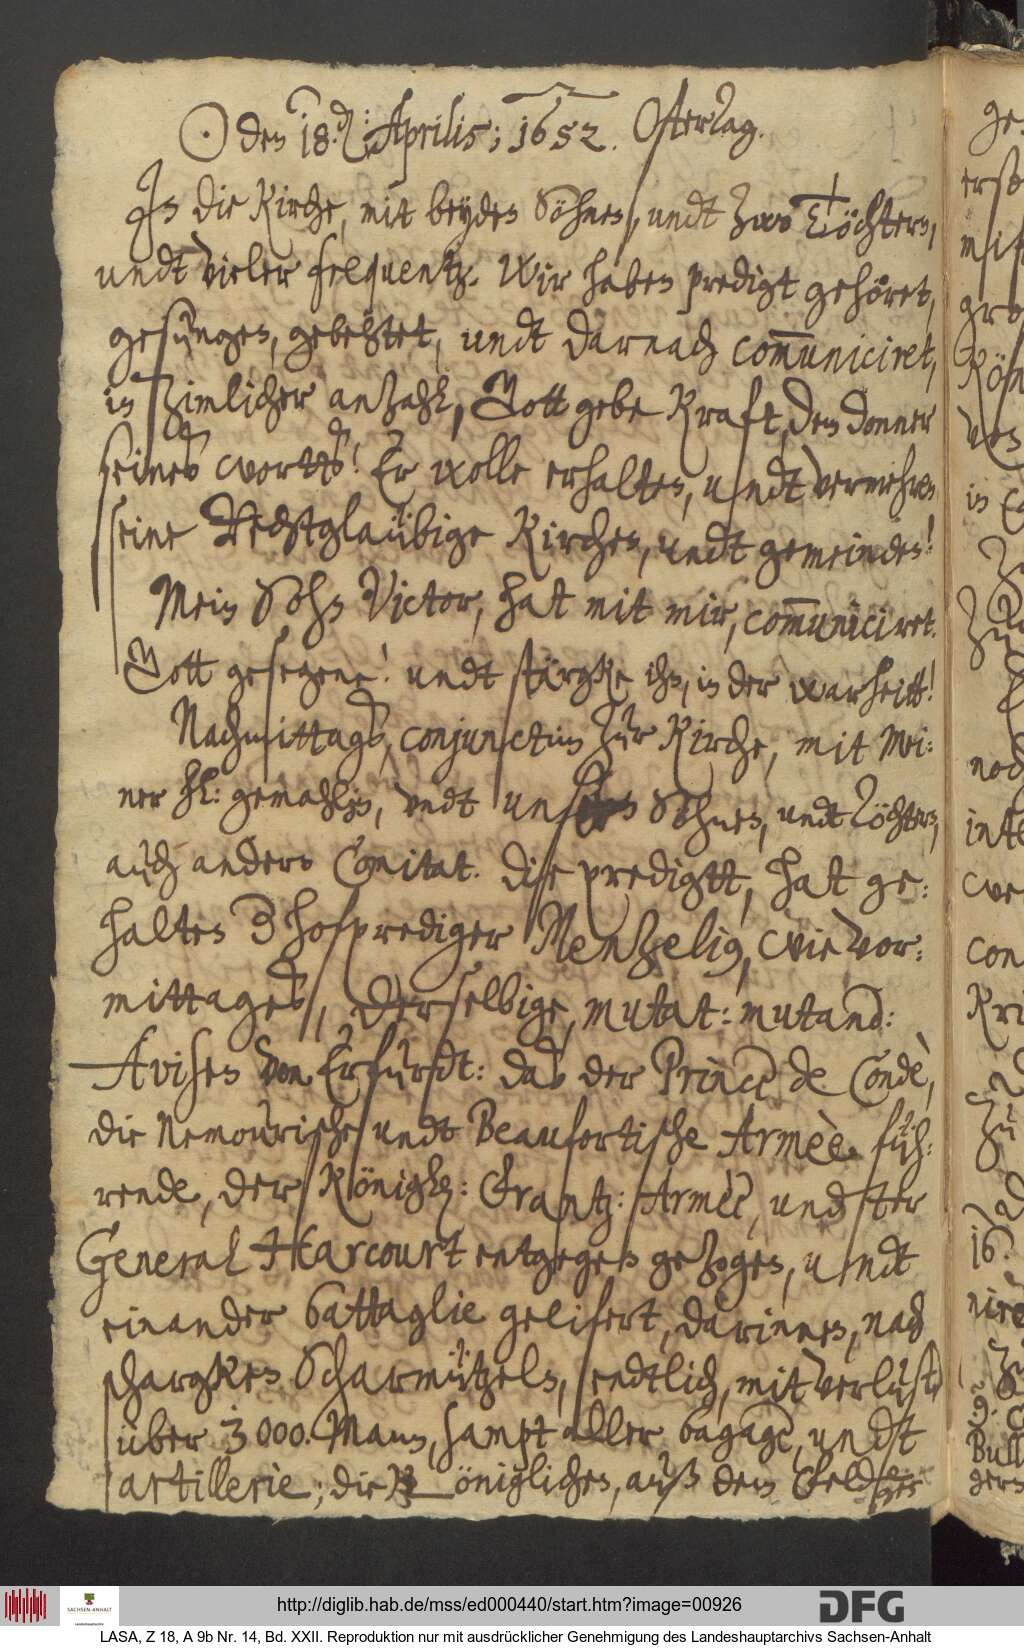 ☉ den 18. d: Aprilis; 1652. Ostertag.
In die Kirche, mit beyden Söhnen, undt zwo Töchtern,
undt vieler frequentz. Wir haben predigt gehöret,
gesungen, gebehtet, undt darnach com̅uniciret,
in zimlicher anzahl, Gott gebe Kraft, dem donner
seines worts! Er wolle erhalten, undt vermehren
seine Rechtglaübige Kirchen, undt gemeinden!
Mein Sohn Victor, hat mit mir, com̅uniciret.
Gott gesegene! undt stärgke ihn, in der warheitt!
Nachmittags, conjunctim zur Kirche, mit Mei:
ner hl: gemahlin, vndt unsern Söhnen, undt Töchtern,
auch andern Comitat. Die predigtt, hat ge:
halten der hofprediger Menzelius, wie vor:
mittages, derselbige, mutat: mutand:
Avisen von Erfurdt: das der Prince de Condè,
die Nemourische undt Beaufortische Armèe füh:
rende, der Königl: Frantz: Armèè, undter
General Harcourt entgegen gezogen, undt
einander battaglie gelifert, darinnen, nach
schargken Scharmützeln, endtlich, mit verlust
über 3000. Mann, sampt aller bagage, undt
artillerie; die Königlichen, auß dem Felde
ger
ersc
mit
gro
Kön
von
in
Zu
noch
inte
we
con
Kri
Zu
16.
nire
Bull
gern
http://diglib.hab.de/mss/ed000440/start.htm?image=00926
SACHSEN-ANHALT
DFG
LASA, Z 18, A 9b Nr. 14, Bd. XXII. Reproduktion nur mit ausdrücklicher Genehmigung des Landeshauptarchivs Sachsen-Anhalt